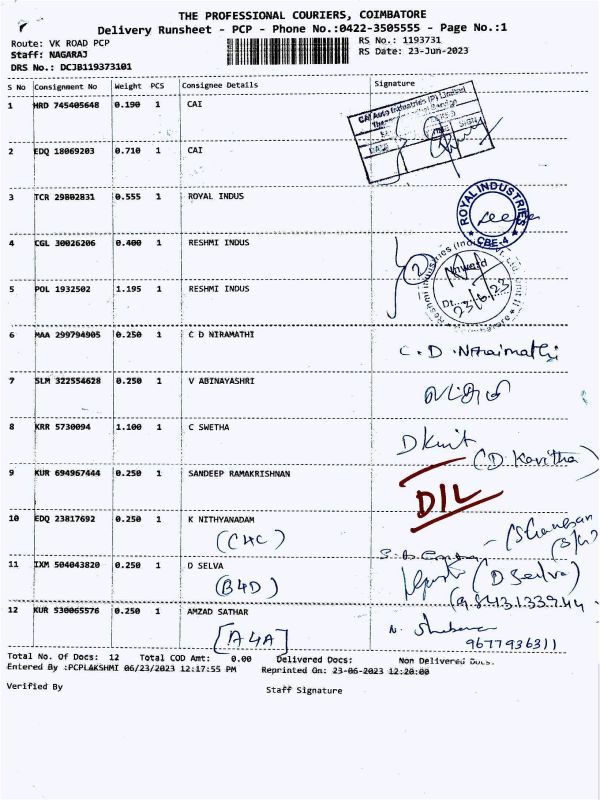 THE PROFESSIONAL COURIERS, COIMBATORE
Delivery Runsheet - PCP - Phone No.:0422-3505555 - Page No.:1
Route: VK ROAD PCP
RS No.: 1193731
Staff: NAGARAJ
RS Date: 23-Jun-2023
DRS No.: DCJB119373101
S No Consignment No Weight PCS Consignee Details Signature
1 HRD 745405648 0.190 1 CAI
CAI Auto Industries (P) Limited
2 EDQ 18069203 0.710 1 CAI
3 TCR 29802831 0.555 1 ROYAL INDUS
ROYAL INDUSTRIES
CBE-4
4 CGL 30026206 0.400 1 RESHMI INDUS
2
Inward
Dt. 23/6/23
5 POL 1932502 1.195 1 RESHMI INDUS
6 MAA 299794905 0.250 1 C D NIRAMATHI
7 SLM 322554628 0.250 1 V ABINAYASHRI
8 KRR 5730094 1.100 1 C SWETHA
(D. Kavitha)
9 KUR 694967444 0.250 1 SANDEEP RAMAKRISHNAN
D/L
10 EDQ 23817692 0.250 1 K NITHYANADAM
(CHC)
11 IXM 504043820 0.250 1 D SELVA
(B4D) (D Selva)
12 KUR 530065576 0.250 1 AMZAD SATHAR
[A4A] 9677936311
Total No. Of Docs: 12 Total COD Amt: 0.00 Delivered Docs: Non Delivered Docs.
Entered By :PCPLAKSHMI 06/23/2023 12:17:55 PM Reprinted On: 23-06-2023 12:20:00
Verified By Staff Signature